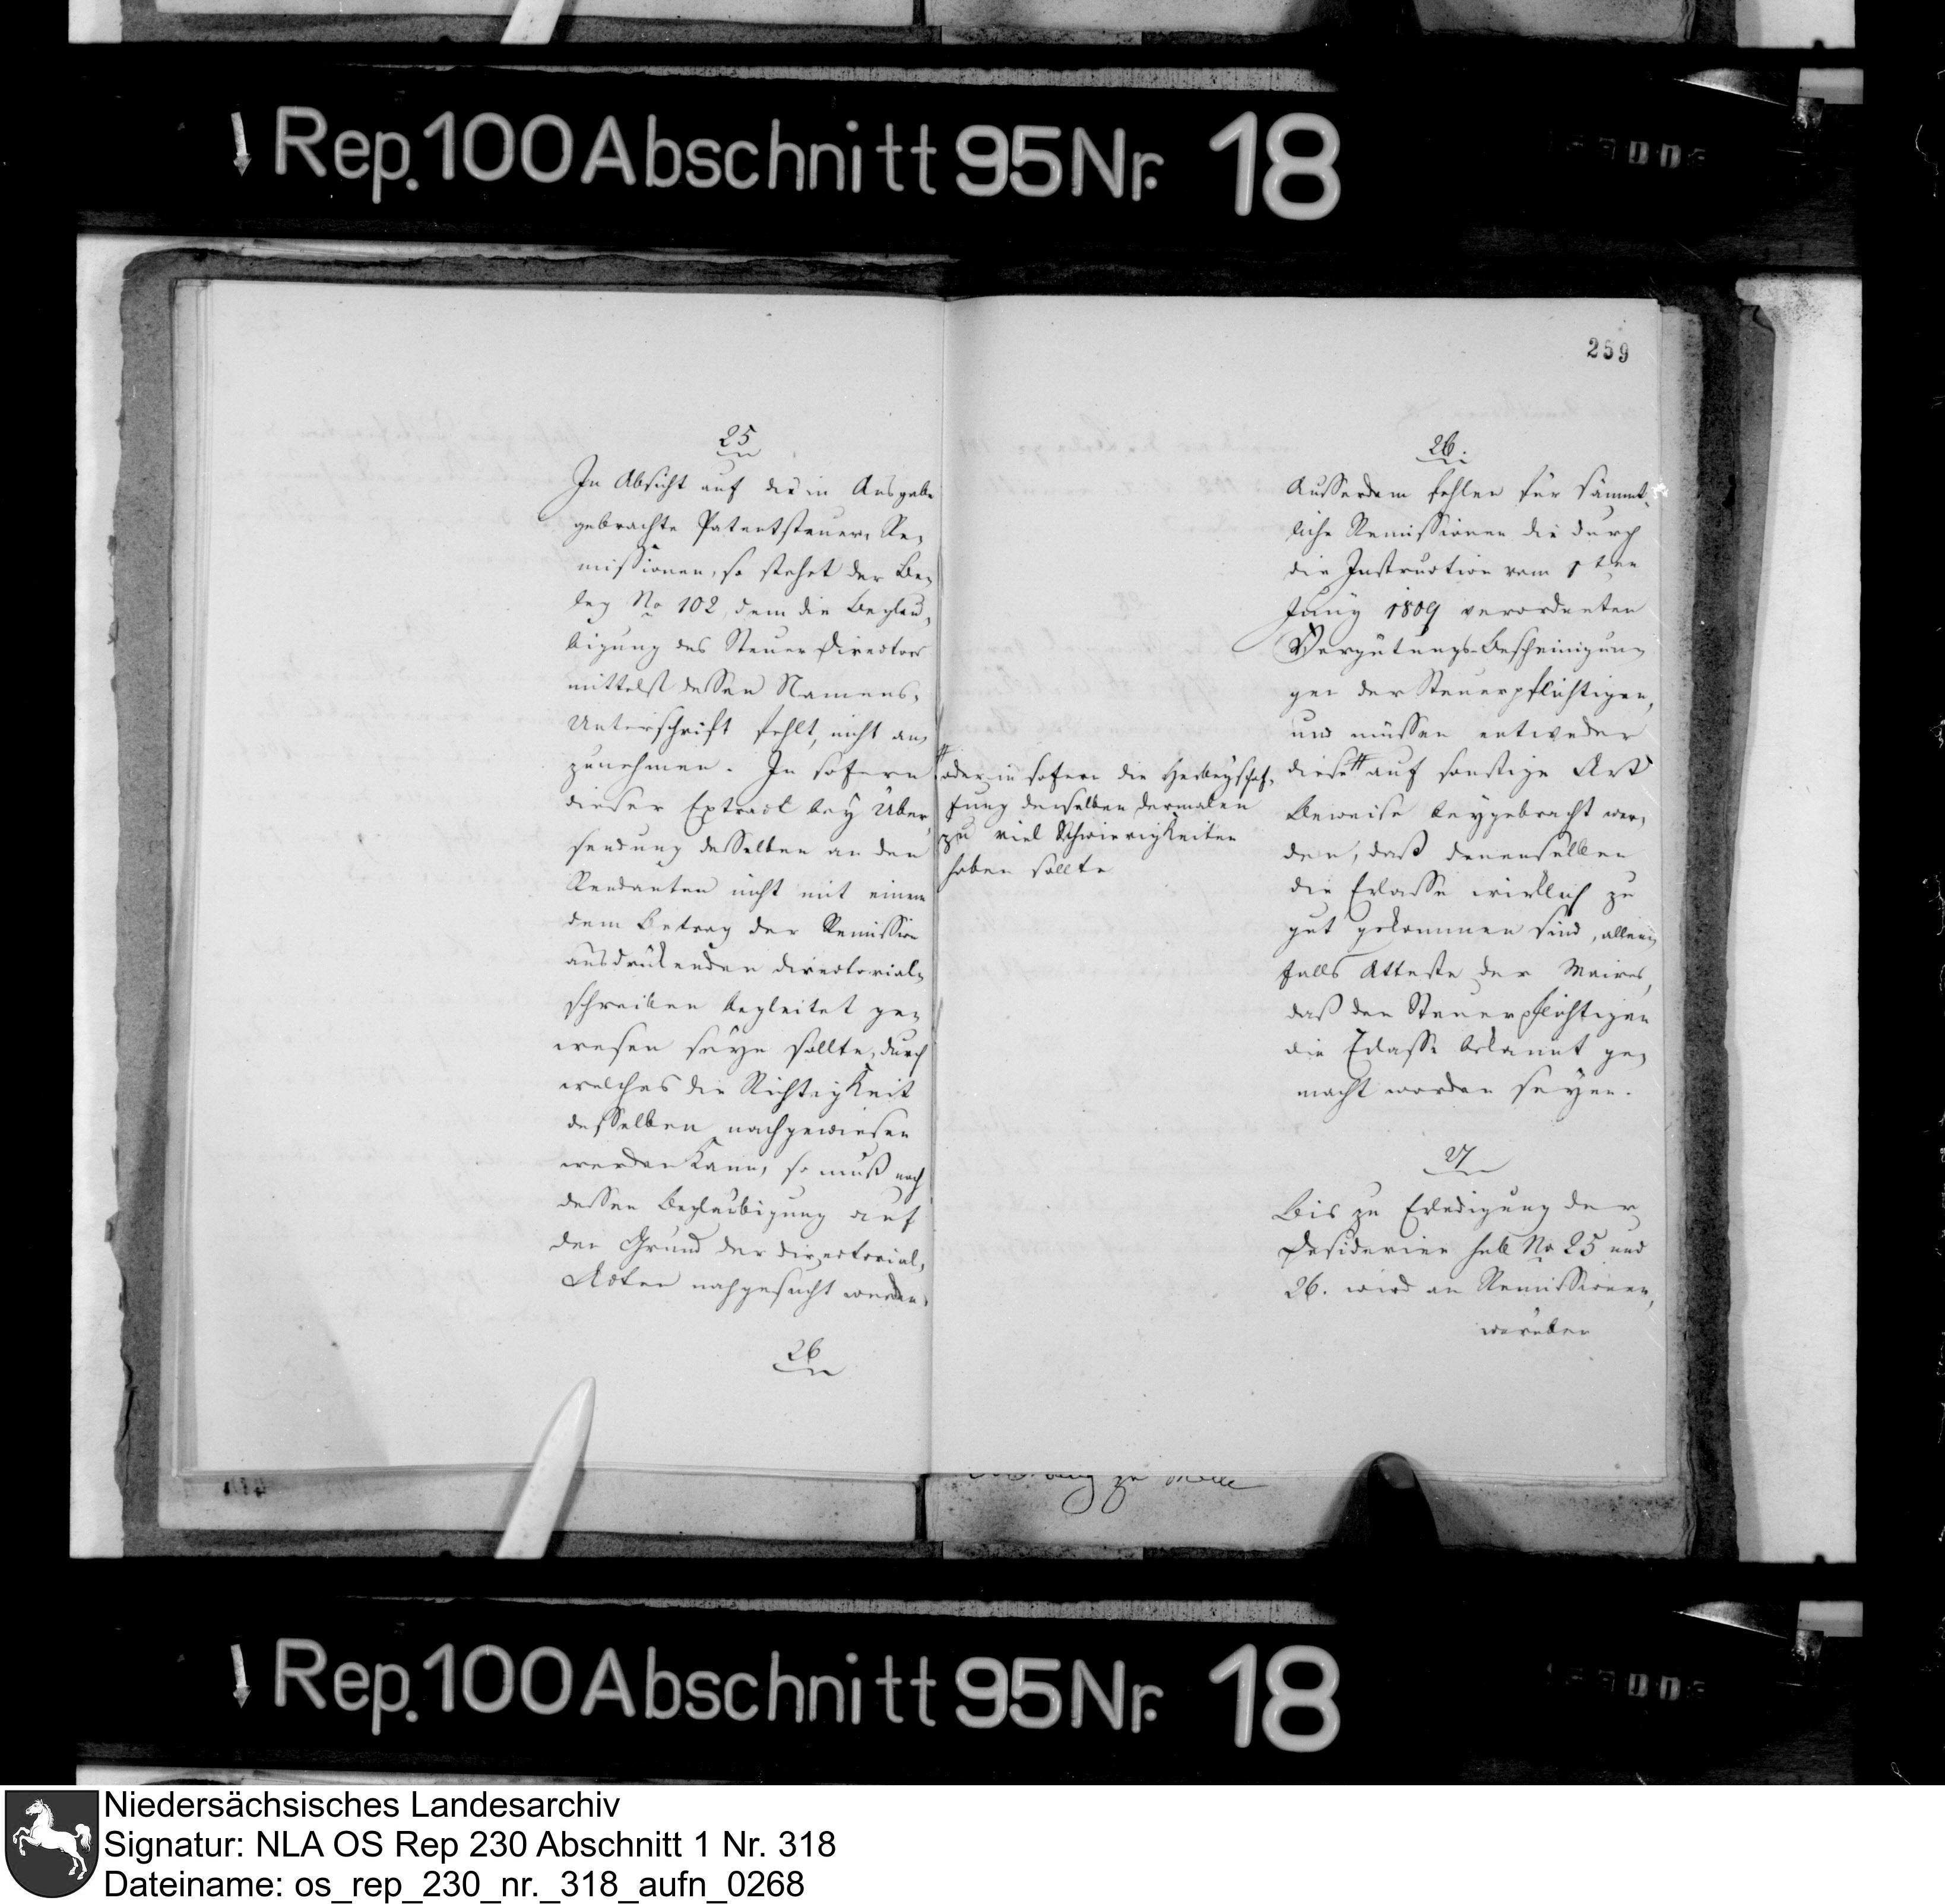 Rep. 100 Abschnitt 95 Nr. 18
25
In Absicht auf die in Ausgabe
gebrachte Patentsteuer, Re,
missionen, so stehet der Be,
leg No 102, dem die Beglau,
bigung des Steuer Directors
mittelst dessen Namens,
Unterschrift fehlt, nicht an,
zunehmen. In sofern
dieser Extract bey Über,
sendung desselben an den
Rendanten nicht mit einem
dem Betrag der Remission
ausdrükenden Directorial,
schreiben begleitet ge,
wesen seyn sollte, durch
welches die Richtigkeit
desselben nachgewiesen
werden kann, so muß noch
dessen Beglaubigung auf
den Grund der Directorial,
Acten nachgesucht werden.
26
259
26.
Ausserdem fehlen für sämmt,
liche Remissionen die durch
die Instruction vom 1ten
Juny 1809 verordneten
Vergütungs-Bescheinigun,
gen der Steuerpflichtigen,
und müssen entweder
diese # auf sonstige Art
Beweise beygebracht wer,
den, daß denenselben
die Erlasse wirklich zu
gut gekommen sind, allen,
falls Atteste der Maires,
daß den Steuerpflichtigen
die Erlasse bekannt ge,
macht worden seyen.
# oder in sofern die Herbeyschaf,
fung derselben dermalen
zu viel Schwierigkeiten
haben sollte
27
Bis zu Erledigung der
Desiderien sub No 25 und
26. wird an Remissionen,
worüber
zu
Rep. 100 Abschnitt 95 Nr. 18
Niedersächsisches Landesarchiv
Signatur: NLA OS Rep 230 Abschnitt 1 Nr. 318
Dateiname: os_rep_230_nr._318_aufn_0268